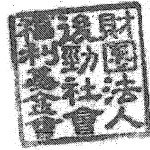 財團法人
後勁社會
福利基金會